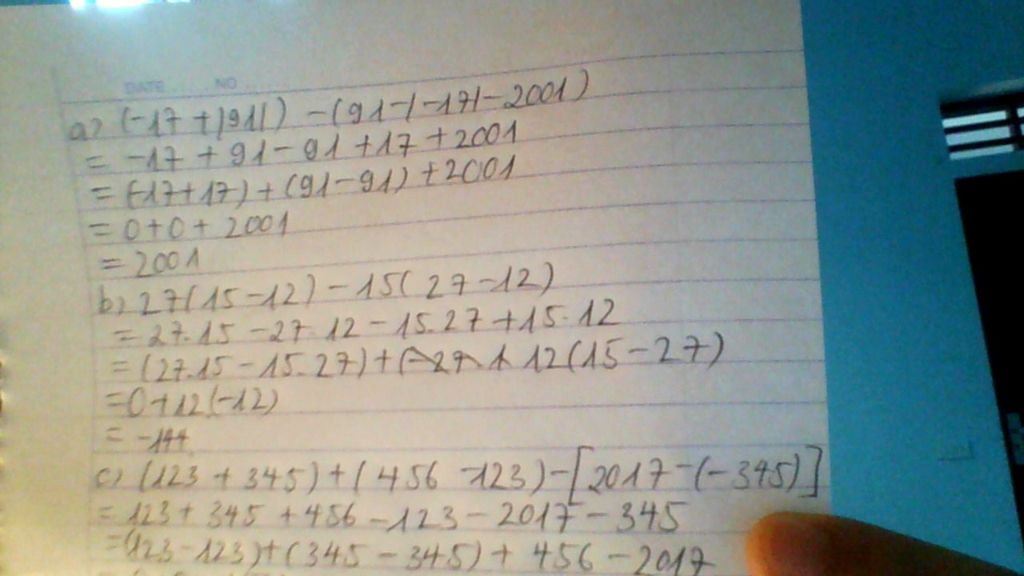 DATE NO
a) (-17 + |91|) - (91 - |-17| - 2001)
= -17 + 91 - 91 + 17 + 2001
= (-17+17) + (91-91) + 2001
= 0+0+ 2001
= 2001
b) 27(15-12) - 15(27-12)
= 27.15 - 27.12 - 15.27 + 15.12
= (27.15 - 15.27) + 12(15-27)
= 0+12(-12)
= -144
c) (123 + 345) + (456 - 123) - [2017 - (-345)]
= 123 + 345 + 456 - 123 - 2017 - 345
= (123-123) + (345 - 345) + 456 - 2017